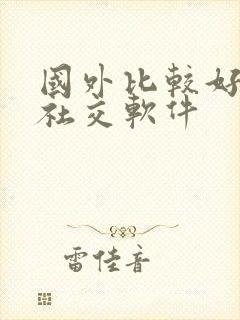 國外比較好
社交軟件
雷佳音